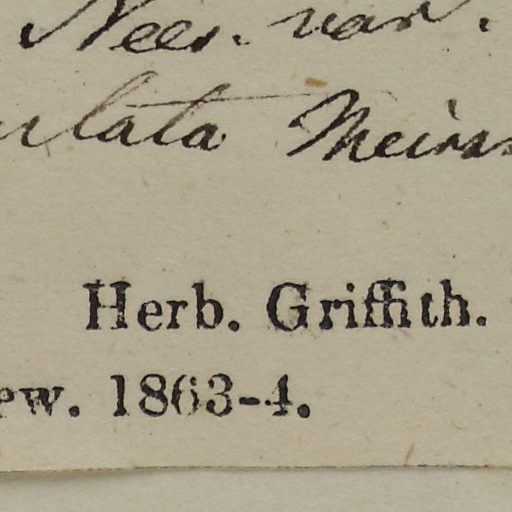 Nees. var.
ulata Meissn
Herb. Griffith.
ew. 1863-4.